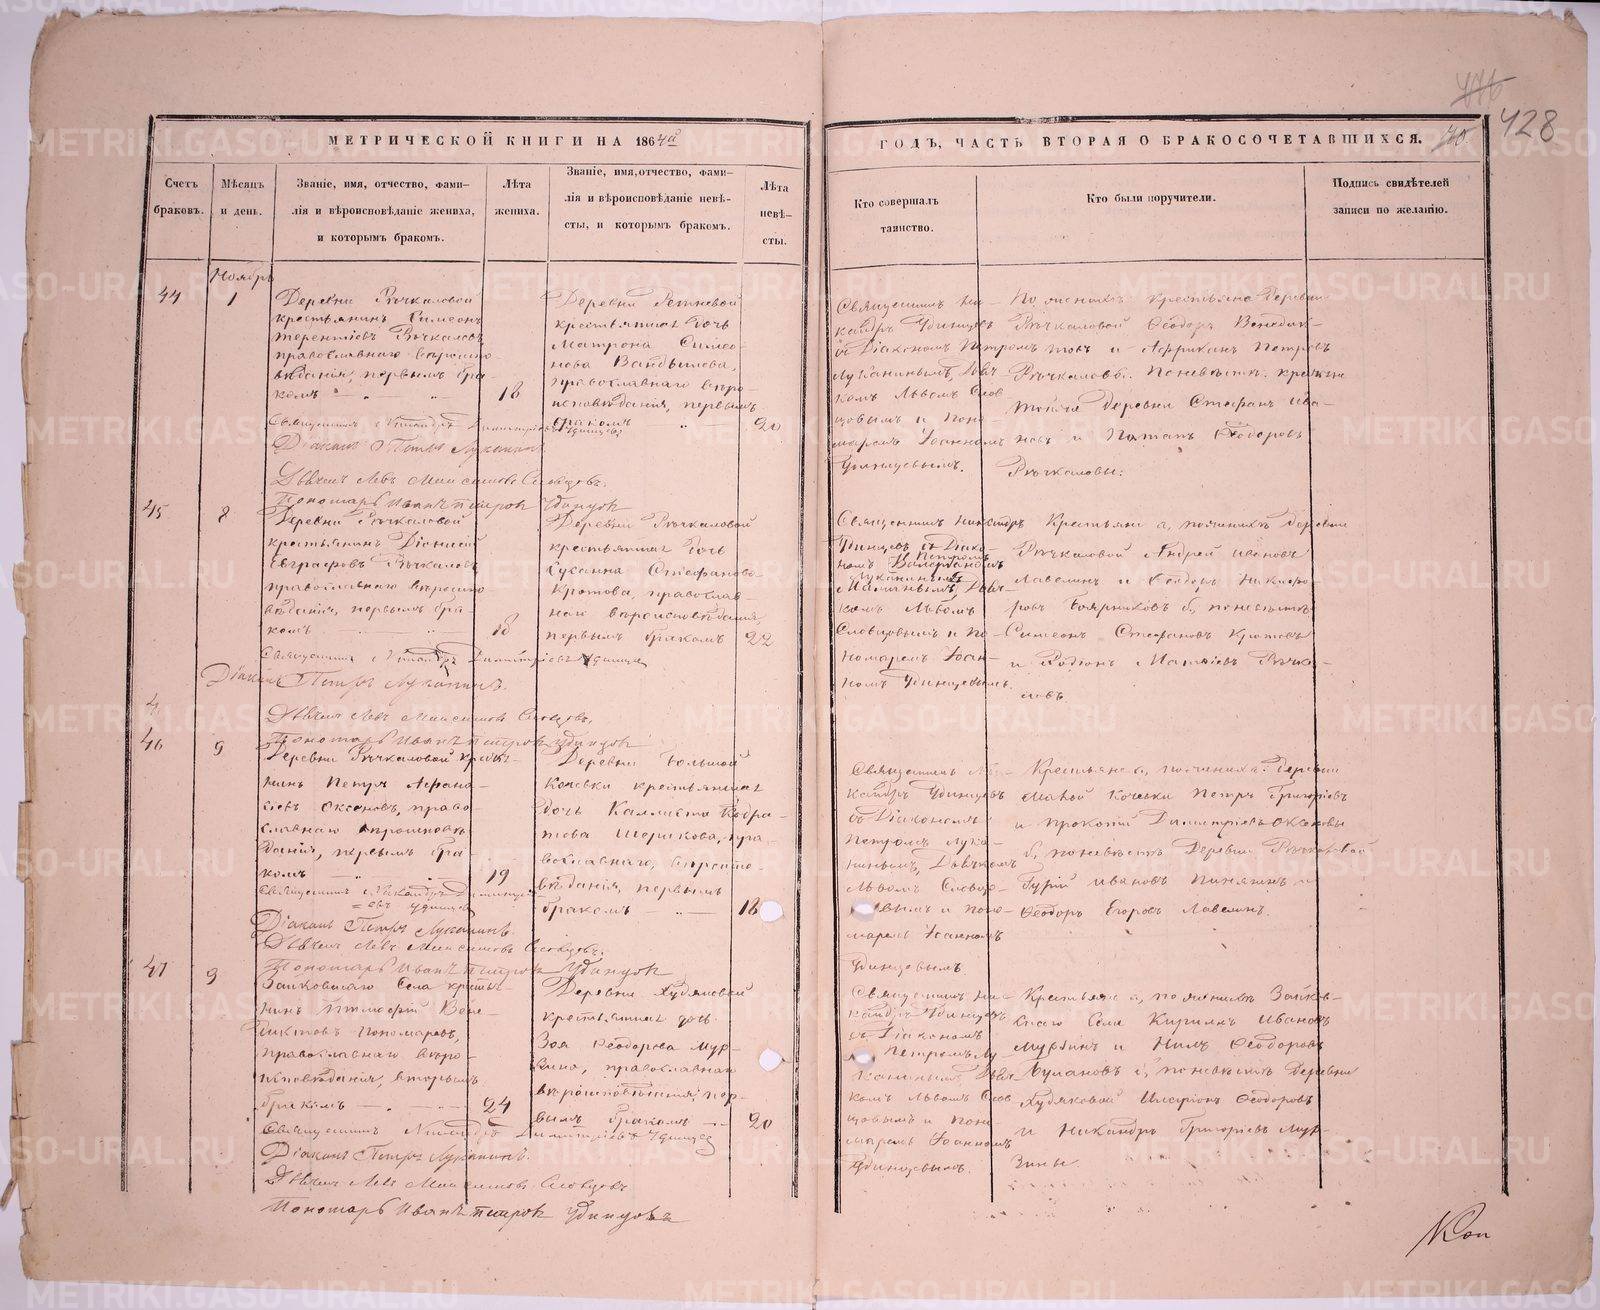 428
МЕТРИЧЕСКОЙ КНИГИ НА 1864й
ГОДЪ, ЧАСТЬ ВТОРАЯ О БРАКОСОЧЕТАВШИХСЯ.
Счетъ
браковъ.
Мѣсяцъ
и день.
Званіе, имя, отчество, фами-
лія и вѣроисповѣданіе жениха,
и которымъ бракомъ.
Лѣта
жениха.
Званіе, имя, отчество, фами-
лія и вѣроисповѣданіе невѣ-
сты, и которымъ бракомъ.
Лѣта
невѣ-
сты.
Кто совершалъ
таинство.
Кто были поручители.
Подпись свидѣтелей
записи по желанію.
Ноябрь
44
1
Деревни Рѣчкаловой
крестьянинъ Симеонъ
Терентіевъ Рѣчкаловъ
православнаго вѣроиспо-
вѣданія, первымъ бра-
комъ
18
Деревни
крестьянина дочь
Матрона Симео-
нова
православнаго вѣро-
исповѣданія, первымъ
бракомъ
20
Священникъ Ни-
кандръ Удинцевъ
съ Діакономъ Петромъ
Луканинымъ, Дьяч-
комъ Львомъ Слов
цовымъ и Поно-
маремъ Іоанномъ
Удинцевымъ.
По женихѣ крестьяне деревни
Рѣчкаловой Ѳеодоръ Венедик-
товъ и Африканъ Петровъ
Рѣчкаловы. По невѣстѣ
деревни Стефанъ Ива-
новъ и Потапъ Ѳеодоровъ
Рѣчкаловы.
Священникъ Никандръ Димитріевъ Удинцевъ
Діаконъ Петръ Луканинъ
Дьячекъ Левъ Максимовъ Словцовъ.
Пономарь Иванъ Петровъ Удинцовъ
45
8
Деревни Рѣчкаловой
крестьянинъ Діонисій
Евграфовъ Рѣчкаловъ
православнаго вѣроиспо-
вѣданія, первымъ бра-
комъ
18
Деревни Рѣчкаловой
крестьянина дочь
Сусанна Стефанова
Кротова, православ-
наго вѣроисповѣданія,
первымъ бракомъ
22
Священникъ Никандръ
Удинцевъ съ Діако-
номъ Петромъ
Луканинымъ
Дьяч-
комъ Львомъ
Словцовымъ и По-
номаремъ Іоан-
номъ Удинцевымъ.
Крестьяне а, по женихѣ деревни
Рѣчкаловой Андрей Ивановъ
Лавелинъ и Ѳеодоръ Никифо-
ровъ Бояркиковъ б, по невѣстѣ
Симеонъ Стефановъ Кротовъ
и Родіонъ Матѳіевъ Рѣчка-
ловъ
Священникъ Никандръ Димитріевъ Удинцевъ
Діаконъ Петръ Луканинъ.
Дьячекъ Левъ Максимовъ Словцовъ.
Пономарь Иванъ Петровъ Удинцовъ
46
9
Деревни Рѣчкаловой крестья-
нинъ Петръ Афана-
сіевъ Оксеновъ, право-
славнаго вѣроисповѣ-
данія, первымъ бра-
комъ
19
Деревни Большой
Кочевки крестьянина
дочь Каллиста Кодра-
това Шорикова, пра-
вославнаго, вѣроиспо-
вѣданія, первымъ
бракомъ
18
Священникъ Ни-
кандръ Удинцевъ
съ Діакономъ
Петромъ Лука-
нинымъ, Дьячкомъ
Львомъ Словцо-
вымъ и Поно-
маремъ Іоанномъ
Удинцевымъ.
Крестьяне а, по женихѣ: деревни
Малой Кочевки Петръ Григоріевъ
и Прокопій Димитріевъ Оксеновы
б, по невѣстѣ деревни Рѣчкаловой
Гурій Ивановъ Пинягинъ и
Ѳеодоръ Егоровъ Лавелинъ.
Священникъ Никандръ Димитрі-
евъ Удинцевъ
Діаконъ Петръ Луканинъ.
Дьячекъ Левъ Максимовъ Словцовъ.
Пономарь Иванъ Петровъ Удинцовъ
47
9
Зайковскаго Села крестья-
нинъ Тимофей Вене-
диктовъ Пономаревъ,
православнаго вѣро-
исповѣданія, вторымъ
бракомъ
24
Деревни Худяковой
крестьянина дочь
Зоя Ѳеодорова Мур-
зина, православнаго
вѣроисповѣданія, пер-
вымъ бракомъ
20
Священникъ Ни-
кандръ Удинцевъ
съ Діакономъ
Петромъ Лу-
канинымъ, Дьяч-
комъ Львомъ Слов
цовымъ и Поно-
маремъ Іоанномъ
Удинцевымъ.
Крестьяне а, по женихѣ Зайков-
скаго Села Кирилъ Ивановъ
Мурзинъ и Нилъ Ѳеодоровъ
Булановъ б, по невѣстѣ деревни
Худяковой Иларіонъ Ѳеодоровъ
и Никандръ Григоріевъ Мур-
зины.
Священникъ Никандръ Димитріевъ Удинцев
Діаконъ Петръ Луканинъ.
Дьячекъ Левъ Максимовъ Словцовъ
Пономарь Иванъ Петровъ Удинцовъ
METRIKI.GASO-URAL.RU